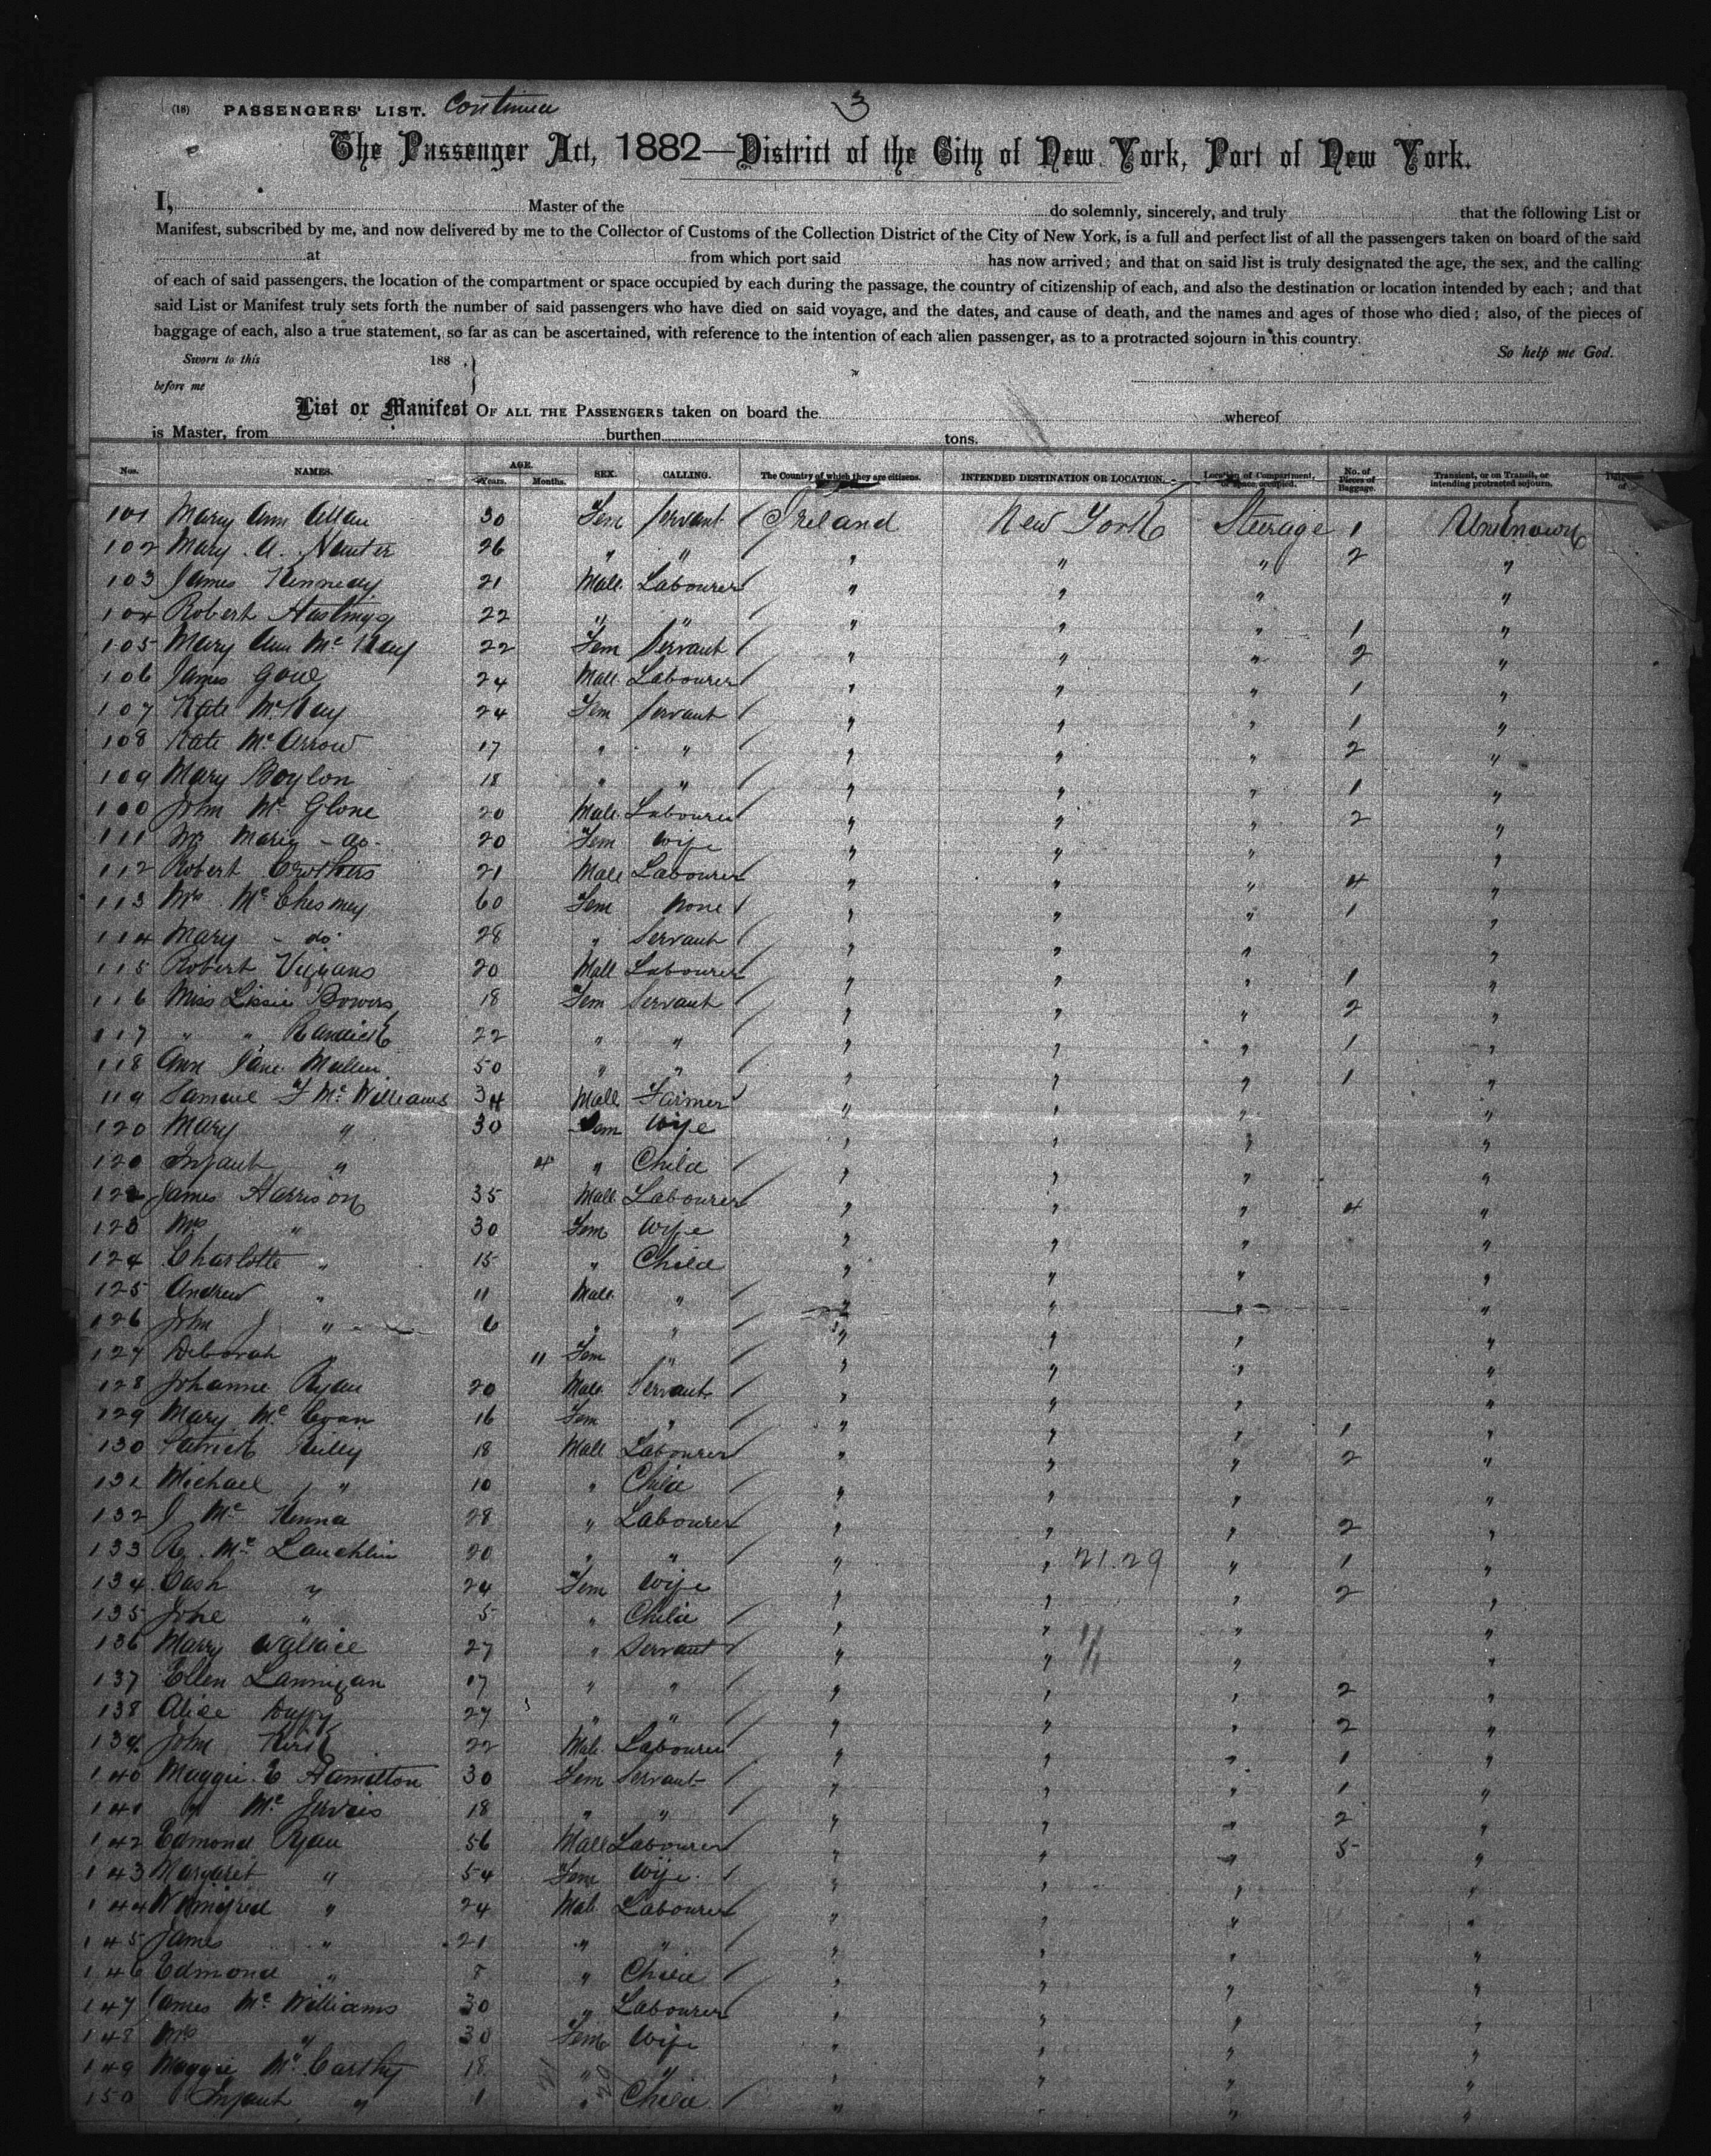 (18) PASSENGERS' LIST. Continued 3
The Passenger Act, 1882—District of the City of New York, Port of New York.
I, Master of the do solemnly, sincerely, and truly that the following List or
Manifest, subscribed by me, and now delivered by me to the Collector of Customs of the Collection District of the City of New York, is a full and perfect list of all the passengers taken on board of the said
at from which port said has now arrived; and that on said list is truly designated the age, the sex, and the calling
of each of said passengers, the location of the compartment or space occupied by each during the passage, the country of citizenship of each, and also the destination or location intended by each; and that
said List or Manifest truly sets forth the number of said passengers who have died on said voyage, and the dates, and cause of death, and the names and ages of those who died; also, of the pieces of
baggage of each, also a true statement, so far as can be ascertained, with reference to the intention of each alien passenger, as to a protracted sojourn in this country.
Sworn to this 188 . } So help me God.
before me
List or Manifest OF ALL THE PASSENGERS taken on board the whereof
is Master, from burthen tons.
Nos. NAMES. AGE. Years. Months. SEX. CALLING. The Country of which they are citizens. INTENDED DESTINATION OR LOCATION. Location of Compartment, or space occupied. No. of Pieces of Baggage. Transient, or on Transit, or intending protracted sojourn.
101 Mary Ann Allan 30 Fem Servant / Ireland New York Steerage 1 Unknown
102 Mary A. 26 " " / " " " 2 "
103 James Kennedy 21 Male Labourer / " " " "
104 Robert Hastings 22 " " / " " " 1 "
105 Mary Ann Mc Kay 22 Fem Servant / " " " 2 "
106 James 24 Male Labourer / " " " 1 "
107 Kate Mc Kay 24 Fem Servant / " " " 1 "
108 Kate Mc Arrow 17 " " / " " " 2 "
109 Mary Boylon 18 " " / " " " 1 "
100 John Mc Glone 20 Male Labourer / " " " 2 "
111 Mrs Marig - do - 20 Fem Wife / " " " "
112 Robert Crothers 21 Male Labourer / " " " 4 "
113 Mrs Mc Chesney 60 Fem None / " " " 1 "
114 Mary - do 28 " Servant / " " " "
115 Robert 20 Male Labourer / " " " 1 "
116 Miss Lissie Bowers 18 Fem Servant / " " " 2 "
117 " " 22 " " / " " " 1 "
118 Ann Jane Mullen 50 " " / " " " 1 "
119 Samuel Mc Williams 34 Male Farmer / " " " "
120 Mary " 30 Fem Wife / " " " "
120 Infant " 4 " Child / " " " "
122 James Harrison 35 Male Labourer / " " " 4 "
123 Mrs " 30 Fem Wife / " " " "
124 Charlotte " 15 " Child / " " " "
125 Andrew " 11 Male " / " " " "
126 John J " 6 " " / " " " "
127 Deborah " 11 Fem " / " " " "
128 Johanne Ryan 20 Male Servant / " " " "
129 Mary Mc 16 Fem " / " " " 1 "
130 Patrick Reilly 18 Male Labourer / " " " 2 "
131 Michael " 10 " Child / " " " "
132 J Mc Kenna 28 " Labourer / " " " 2 "
133 Mc Lauchlin 20 " " / " " 21.29 " 1 "
134 Cash " 24 Fem Wife / " " " 2 "
135 " 5 " Child / " " " "
136 Marry Wallace 27 " Servant / " " " "
137 Ellen Lannigan 17 " " / " " " 2 "
138 Alice Duffy 27 " " / " " " 2 "
139 John Kirk 22 Male Labourer / " " " 1 "
140 Maggie E Hamilton 30 Fem Servant / " " " 1 "
141 " Mc Jervis 18 " " / " " " 2 "
142 Edmond Ryan 56 Male Labourer / " " " 5 "
143 Margaret " 54 Fem Wife / " " " "
144 Winnifred " 24 Male Labourer / " " " "
145 James " 21 " " / " " " "
146 Edmond " " Child / " " " "
147 James Mc Williams 30 " Labourer / " " " "
148 Mrs " 30 Fem Wife / " " " "
149 Maggie Mc Carthy 18 " " / " " " "
150 Infant " 1 " Child / " " " "